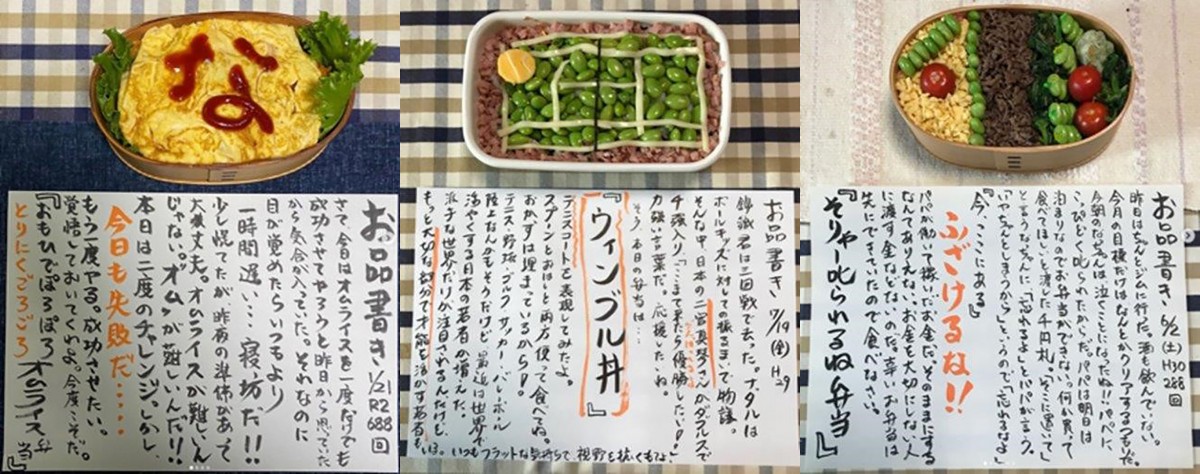 な
お品書き 1/21 R2 688回
さて、今日はオムライスを一度だけでも
成功させてやろうと昨日から思っていた
から気合が入っていた。それなのに
目が覚めたらいつもより
一時間遅い…寝坊だ!!
少し慌てたが、昨夜の準備があって
大丈夫。オムライスが難しいん
じゃない。"オム"が難しいんだ!!
本日は二度のチャレンジ。しかし、
今日も失敗だ……
もう一度やる。成功させたい。
覚悟しておいてくれよ。今度こそだ。
『おもひでぽろぽろオムライス弁当』
とりにくごろごろ
お品書き 7/19(金) H29
錦織君は三回戦で去った。ナダルは
ボーキッズに対しての振るまいが物議。
そんな中、日本の二宮真琴さんがダブルスで
「ここまで来たら優勝したい!」
力強い言葉だ。応援したいね。
そう、本日の弁当は…
『ウィンブル丼』
テニスコートを表現してみたよ。
スプーンとおはしと両方使って食べてね。
おかずは埋まっているから!
テニス・野球・ゴルフ・サッカー・バレーボール
陸上なんかもそうだけど、最近は世界で
活やくする日本の若者が増えた。
派手な世界だけが注目されがちだけど、
もっと大切な部分で才能を活かす若者も
いる。いつもフラットな気持ちで視野を拡くもとよ。
お品書き 6/2(土) H30 288回
昨日はちゃんとジムに行けた。酒も飲んでいない。
今月の目標だけはなんとかクリアするつもりだ。
今朝のお兄さんは泣くことになったね!!パパに、
こっぴどく叱られたからだ。パパは明日は
泊まりなのでお弁当ができない。何か買って
食べてほしいと渡した千円札。「そこに置いて」
というなっちゃんに「忘れるよ」とパパが言う。
「いっちゃんとしまうから」というので「忘れるなよ」
『今、ここにある』
ふざけるな!!
パパが働いて稼いだお金だ。そのままにする
なんてありえない。お金を大切にしない人
に渡す金などないのだ。幸いお弁当は
先にできていたので食べなさい。
『そりゃー叱られるね弁当』